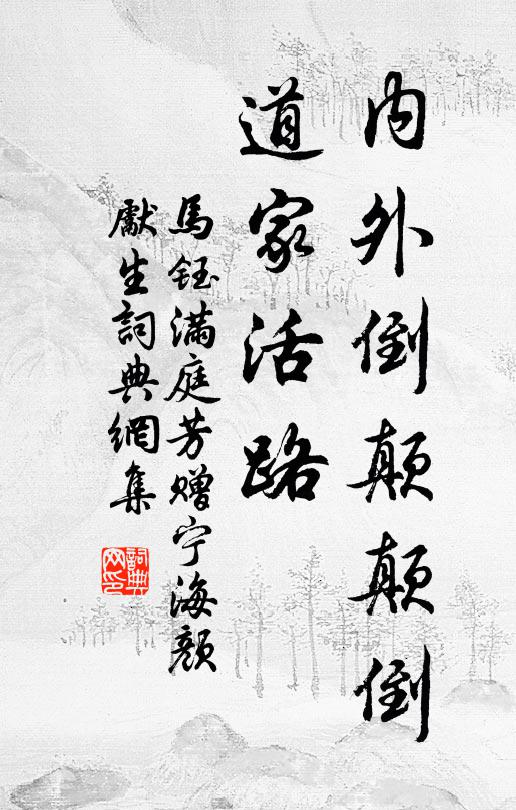 内外倒颠颠倒
道家活路
馬钰满庭芳赠宁海顏
獻生詞典網集
詞典网印